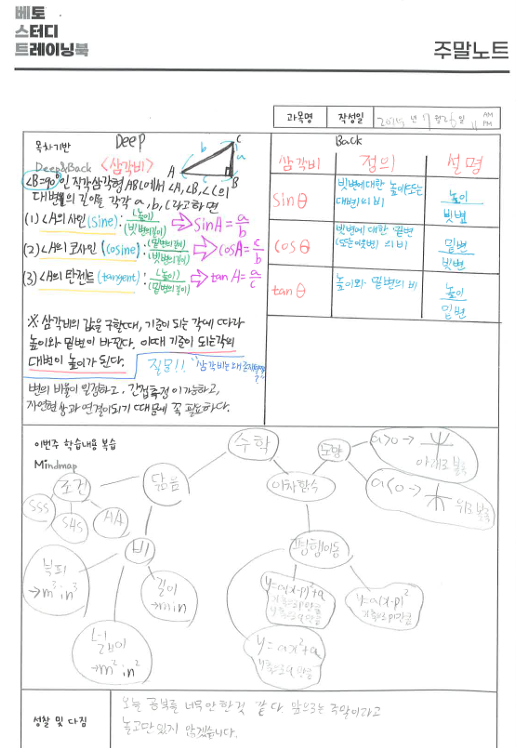 베토
스터디
트레이닝북
주말노트
과목명
작성일
AM
PM
목차기반
Deep&Back
Deep
<삼각비>
∠B=90°인 직각삼각형 ABC에서 ∠A, ∠B, ∠C의
대변들의 길이를 각각 a, b, c라고하면
(1) ∠A의 사인(sine): (높이)/(빗변의길이) ⇒ sinA = a/b
(2) ∠A의 코사인(cosine): (밑변의길이)/(빗변의길이) ⇒ cosA = c/b
(3) ∠A의 탄젠트(tangent): (높이)/(밑변의길이) ⇒ tanA = a/c
A
B
C
a
b
c
※ 삼각비의 값을 구할때, 기준이 되는 각에 따라
높이와 밑변이 바뀐다. 이때 기준이 되는각의
대변이 높이가 된다.
질문!! 삼각비는 왜
변의 비율이 일정하고, 간접측정이 가능하고,
자연현상과 연결이되기 때문에 꼭 필요하다.
Back
삼각비 정의 설명
sinθ 빗변에대한 높이 높이/빗변
대변의 비
cosθ 빗변에 대한 밑변 밑변/빗변
의 비
tanθ 높이와 밑변의 비 높이/밑변
이번주 학습내용 복습
Mindmap
수학
조건
SSS
SAS
AA
닮음
비
부피
→m³:n³
넓이
→m²:n²
길이
→m:n
이차함수
모양
a>0 →
아래로 볼록
a<0 →
위로 볼록
평행이동
y=a(x-p)²+q
y=a(x-p)²
y=ax²+q
성찰 및 다짐
오늘 공부를 너무 안 한 것 같다. 앞으로는 주말이라고
놀고만 있지 않겠습니다.